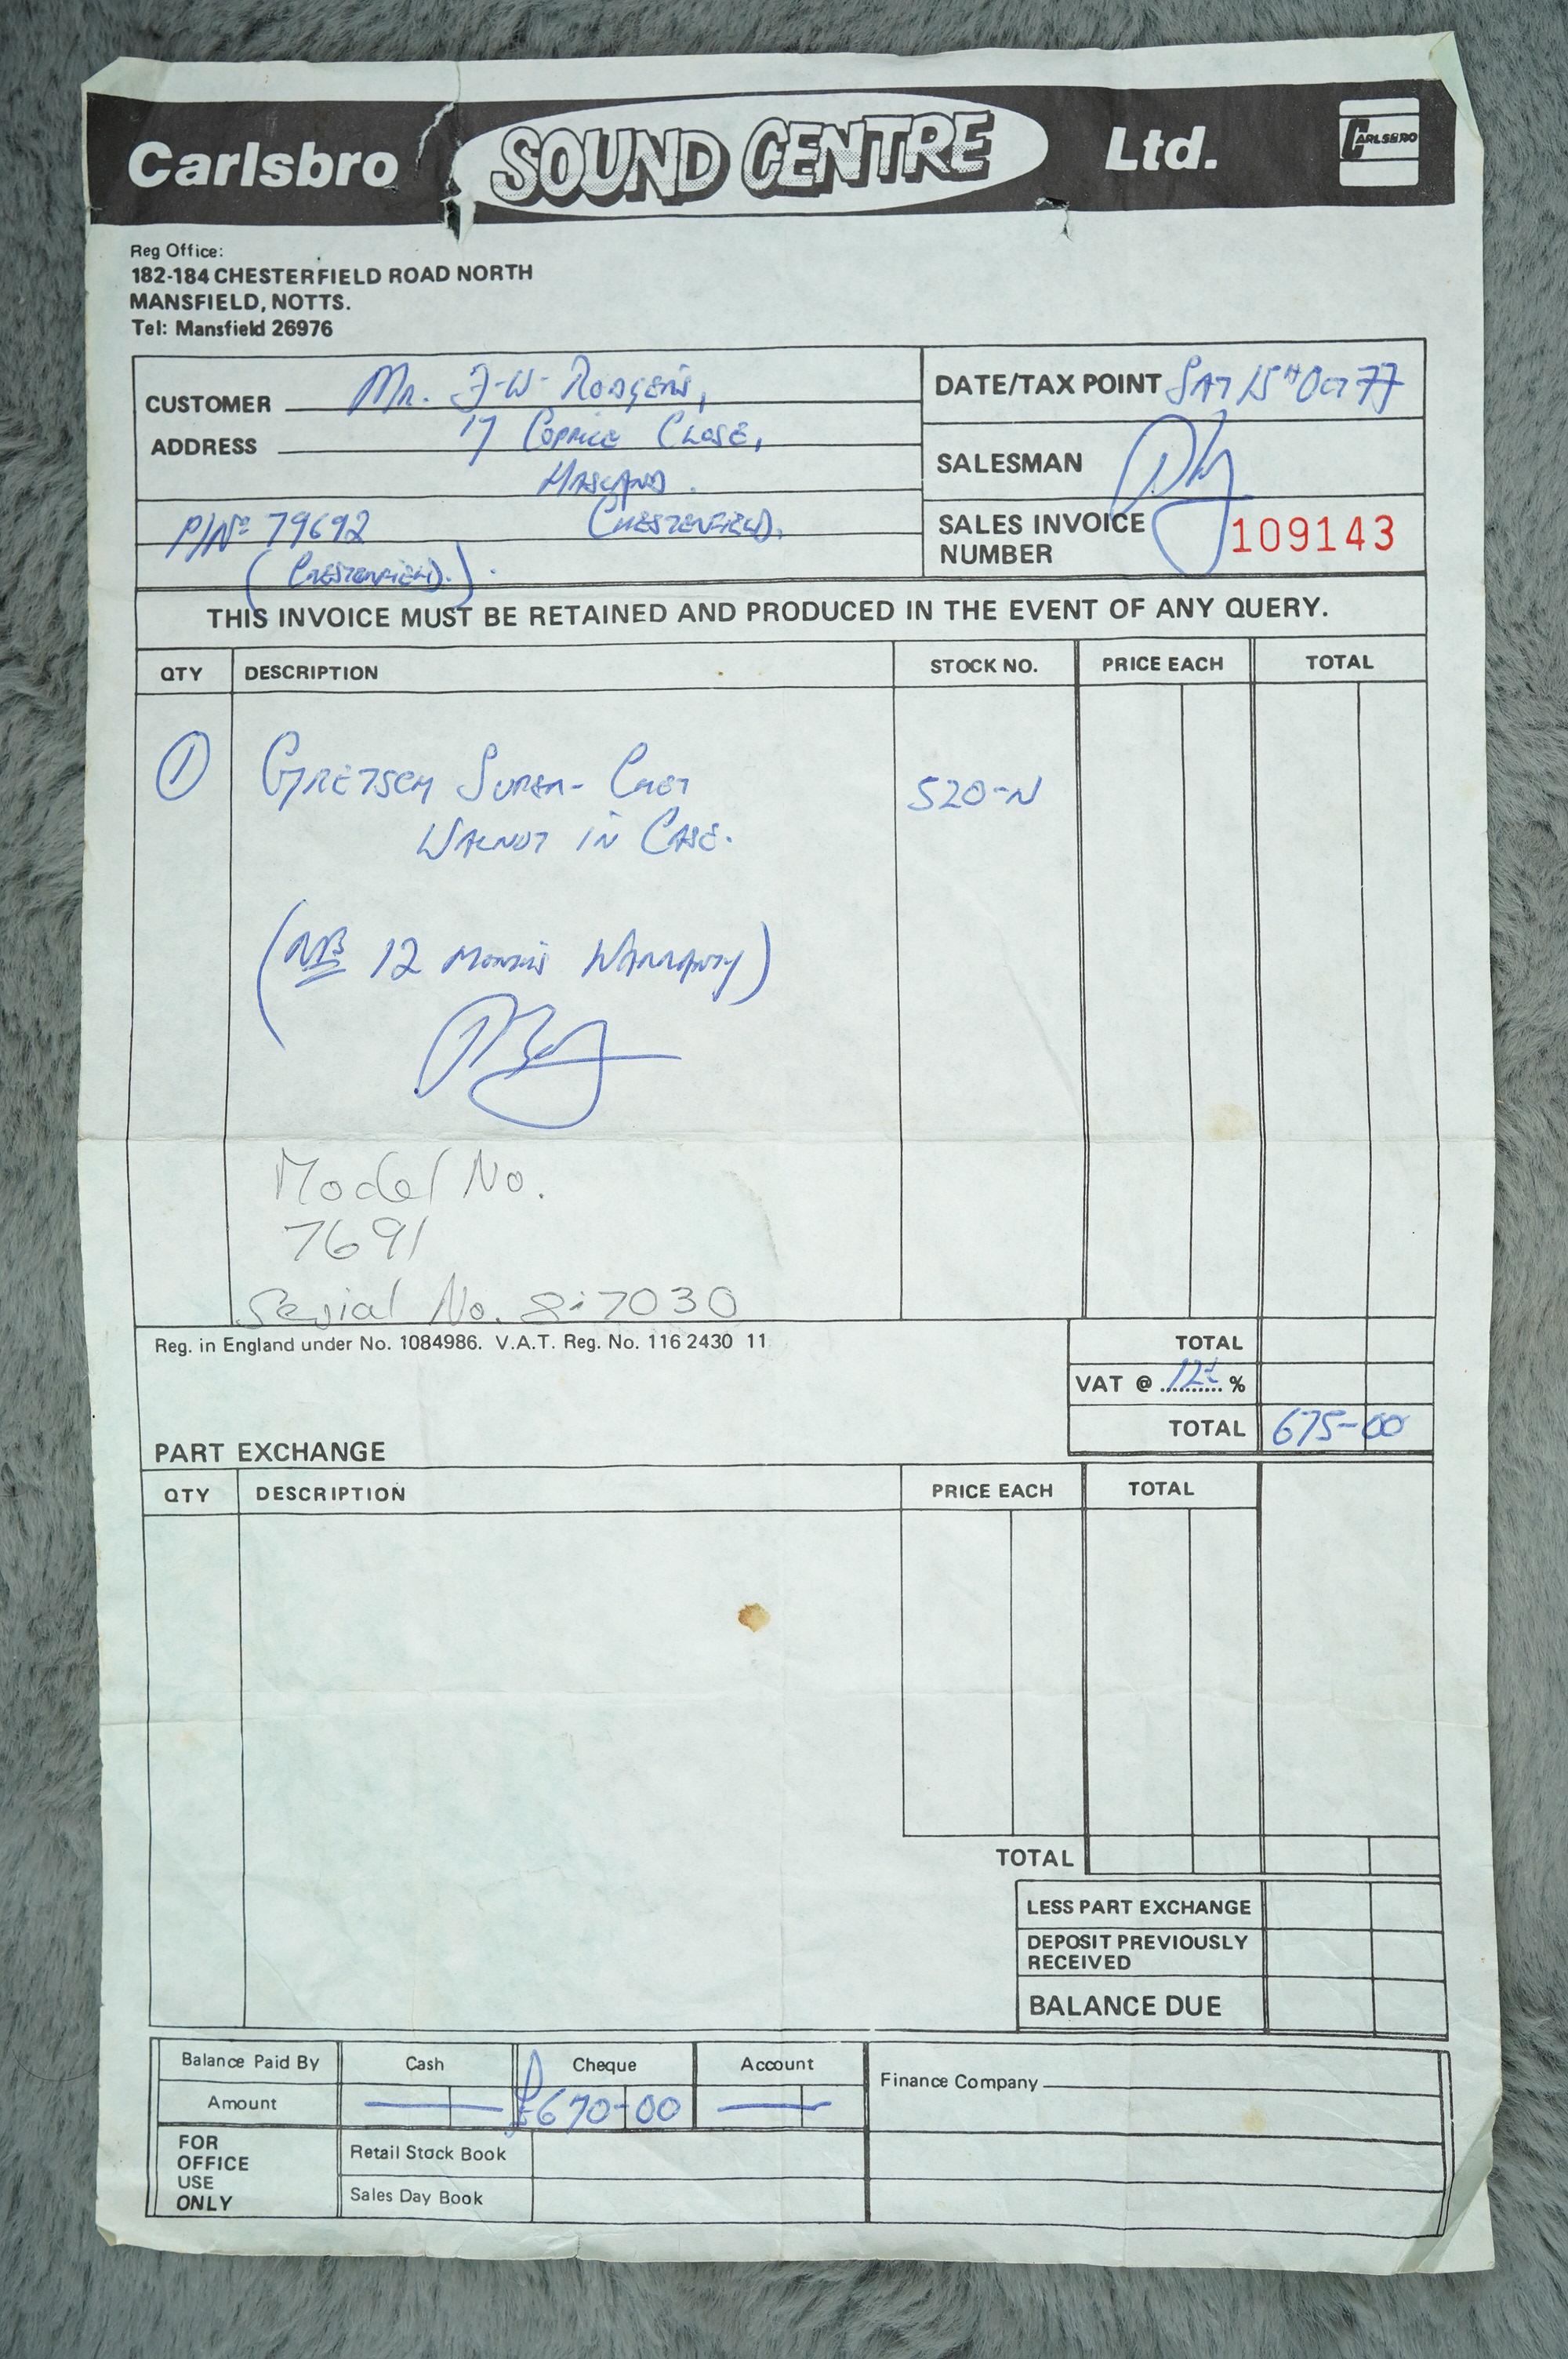 Carlsbro SOUND CENTRE Ltd. CARLSBRO
Reg Office:
182-184 CHESTERFIELD ROAD NORTH
MANSFIELD, NOTTS.
Tel: Mansfield 26976
CUSTOMER Mr. J-W- Rodgers,
ADDRESS 17 Coppice Close,
Hasland.
P/No 79692 (Chesterfield).
(Chesterfield).
DATE/TAX POINT SAT 15th Oct 77
SALESMAN
SALES INVOICE NUMBER 109143
THIS INVOICE MUST BE RETAINED AND PRODUCED IN THE EVENT OF ANY QUERY.
QTY DESCRIPTION STOCK NO. PRICE EACH TOTAL
1 Gretsch Super-Chet 520-N
Walnut in Case.
(NB 12 Months Warranty)
Model No.
7691
Serial No. 8:7030
Reg. in England under No. 1084986. V.A.T. Reg. No. 116 2430 11
TOTAL
VAT @ 12½ %
TOTAL 675-00
PART EXCHANGE
QTY DESCRIPTION PRICE EACH TOTAL
TOTAL
LESS PART EXCHANGE
DEPOSIT PREVIOUSLY RECEIVED
BALANCE DUE
Balance Paid By Cash Cheque Account
Amount £670-00
Finance Company
FOR OFFICE USE ONLY
Retail Stock Book
Sales Day Book